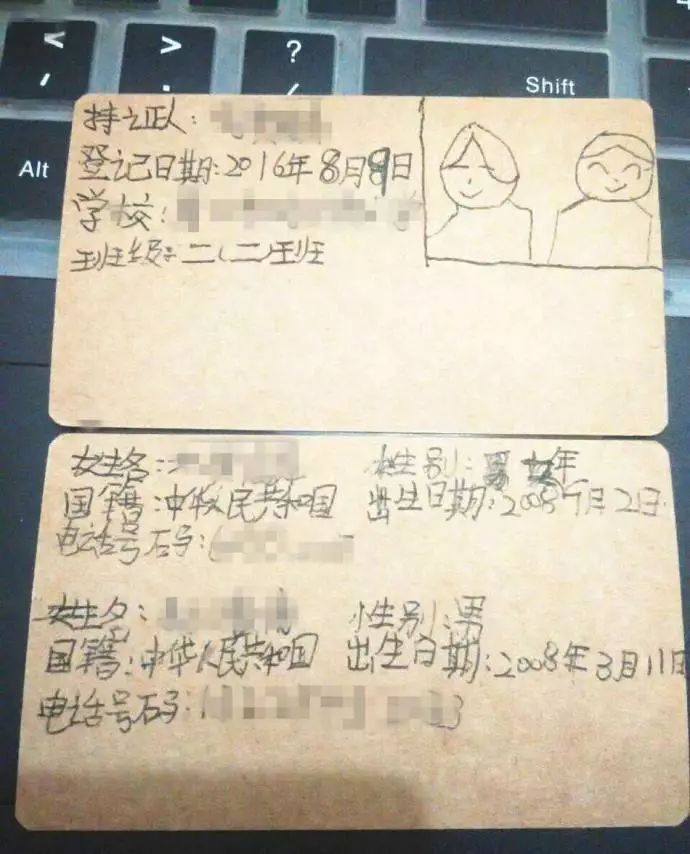 <
>
?
,
.
/
Shift
Alt
持证人:
登记日期:2016年8月9日
学校:
班级:二(二)班
性别:
国籍:中华人民共和国 出生日期:2008年7月2日
电话号码:
性别:男
国籍:中华人民共和国 出生日期:2008年3月11日
电话号码: